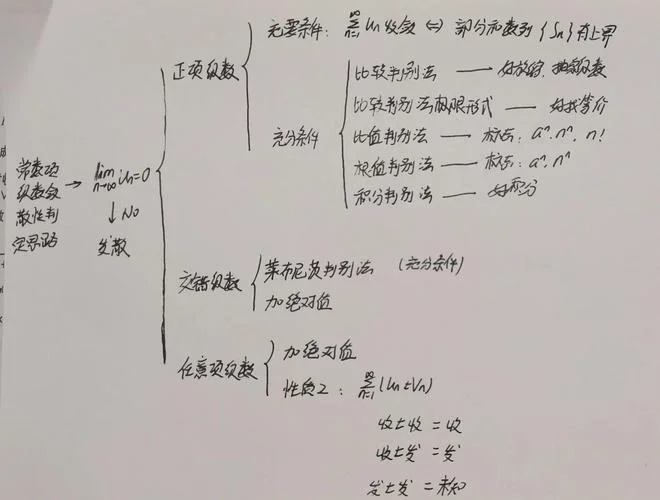 充要条件: ∞∑n=1 Un收敛 ⇔ 部分和数列{Sn}有上界
正项级数
比较判别法 —— 好放缩, 抽象级数
比较判别法极限形式 —— 好找等价
充分条件
比值判别法 —— 标志: aⁿ, nⁿ, n!
根值判别法 —— 标志: aⁿ, nⁿ
积分判别法 —— 好积分
常数项
级数敛
散性判
定思路
→ lim n→∞ Un=0
↓ No
发散
交错级数
莱布尼茨判别法 (充分条件)
加绝对值
任意项级数
加绝对值
性质2: ∞∑n=1 (Un±Vn)
收±收 = 收
收±发 = 发
发±发 = 未知